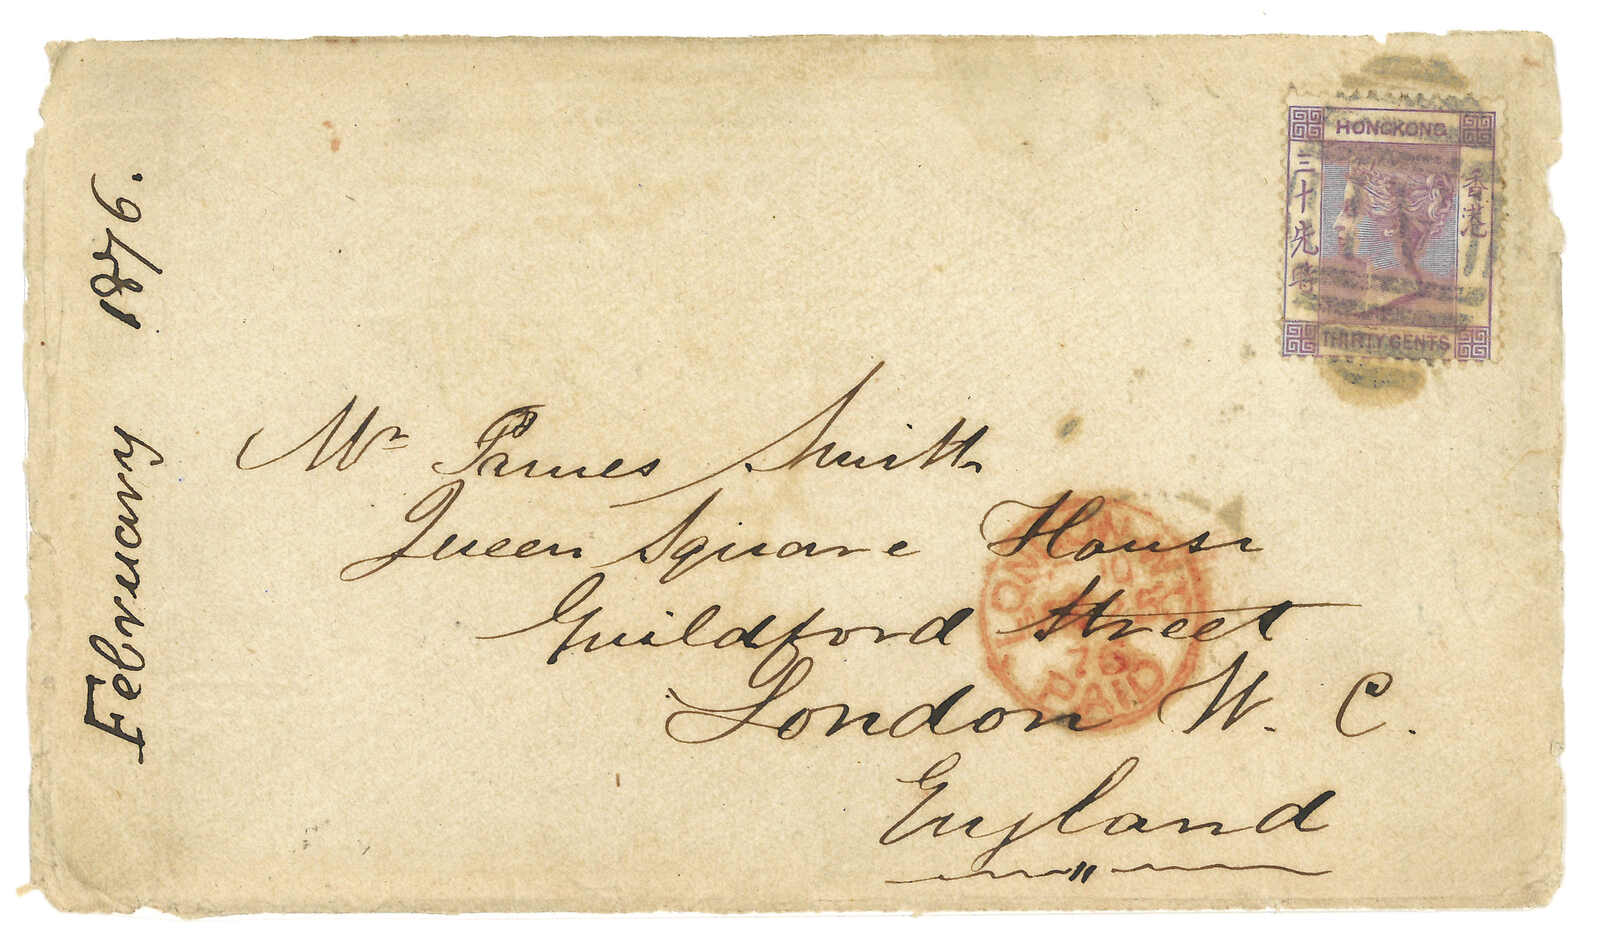 February 1876.
HONGKONG
三十先時
香港
THIRTY CENTS
Mr James Smith
Queen Square House
Guildford Street
London W. C.
England
LONDON
76
PAID